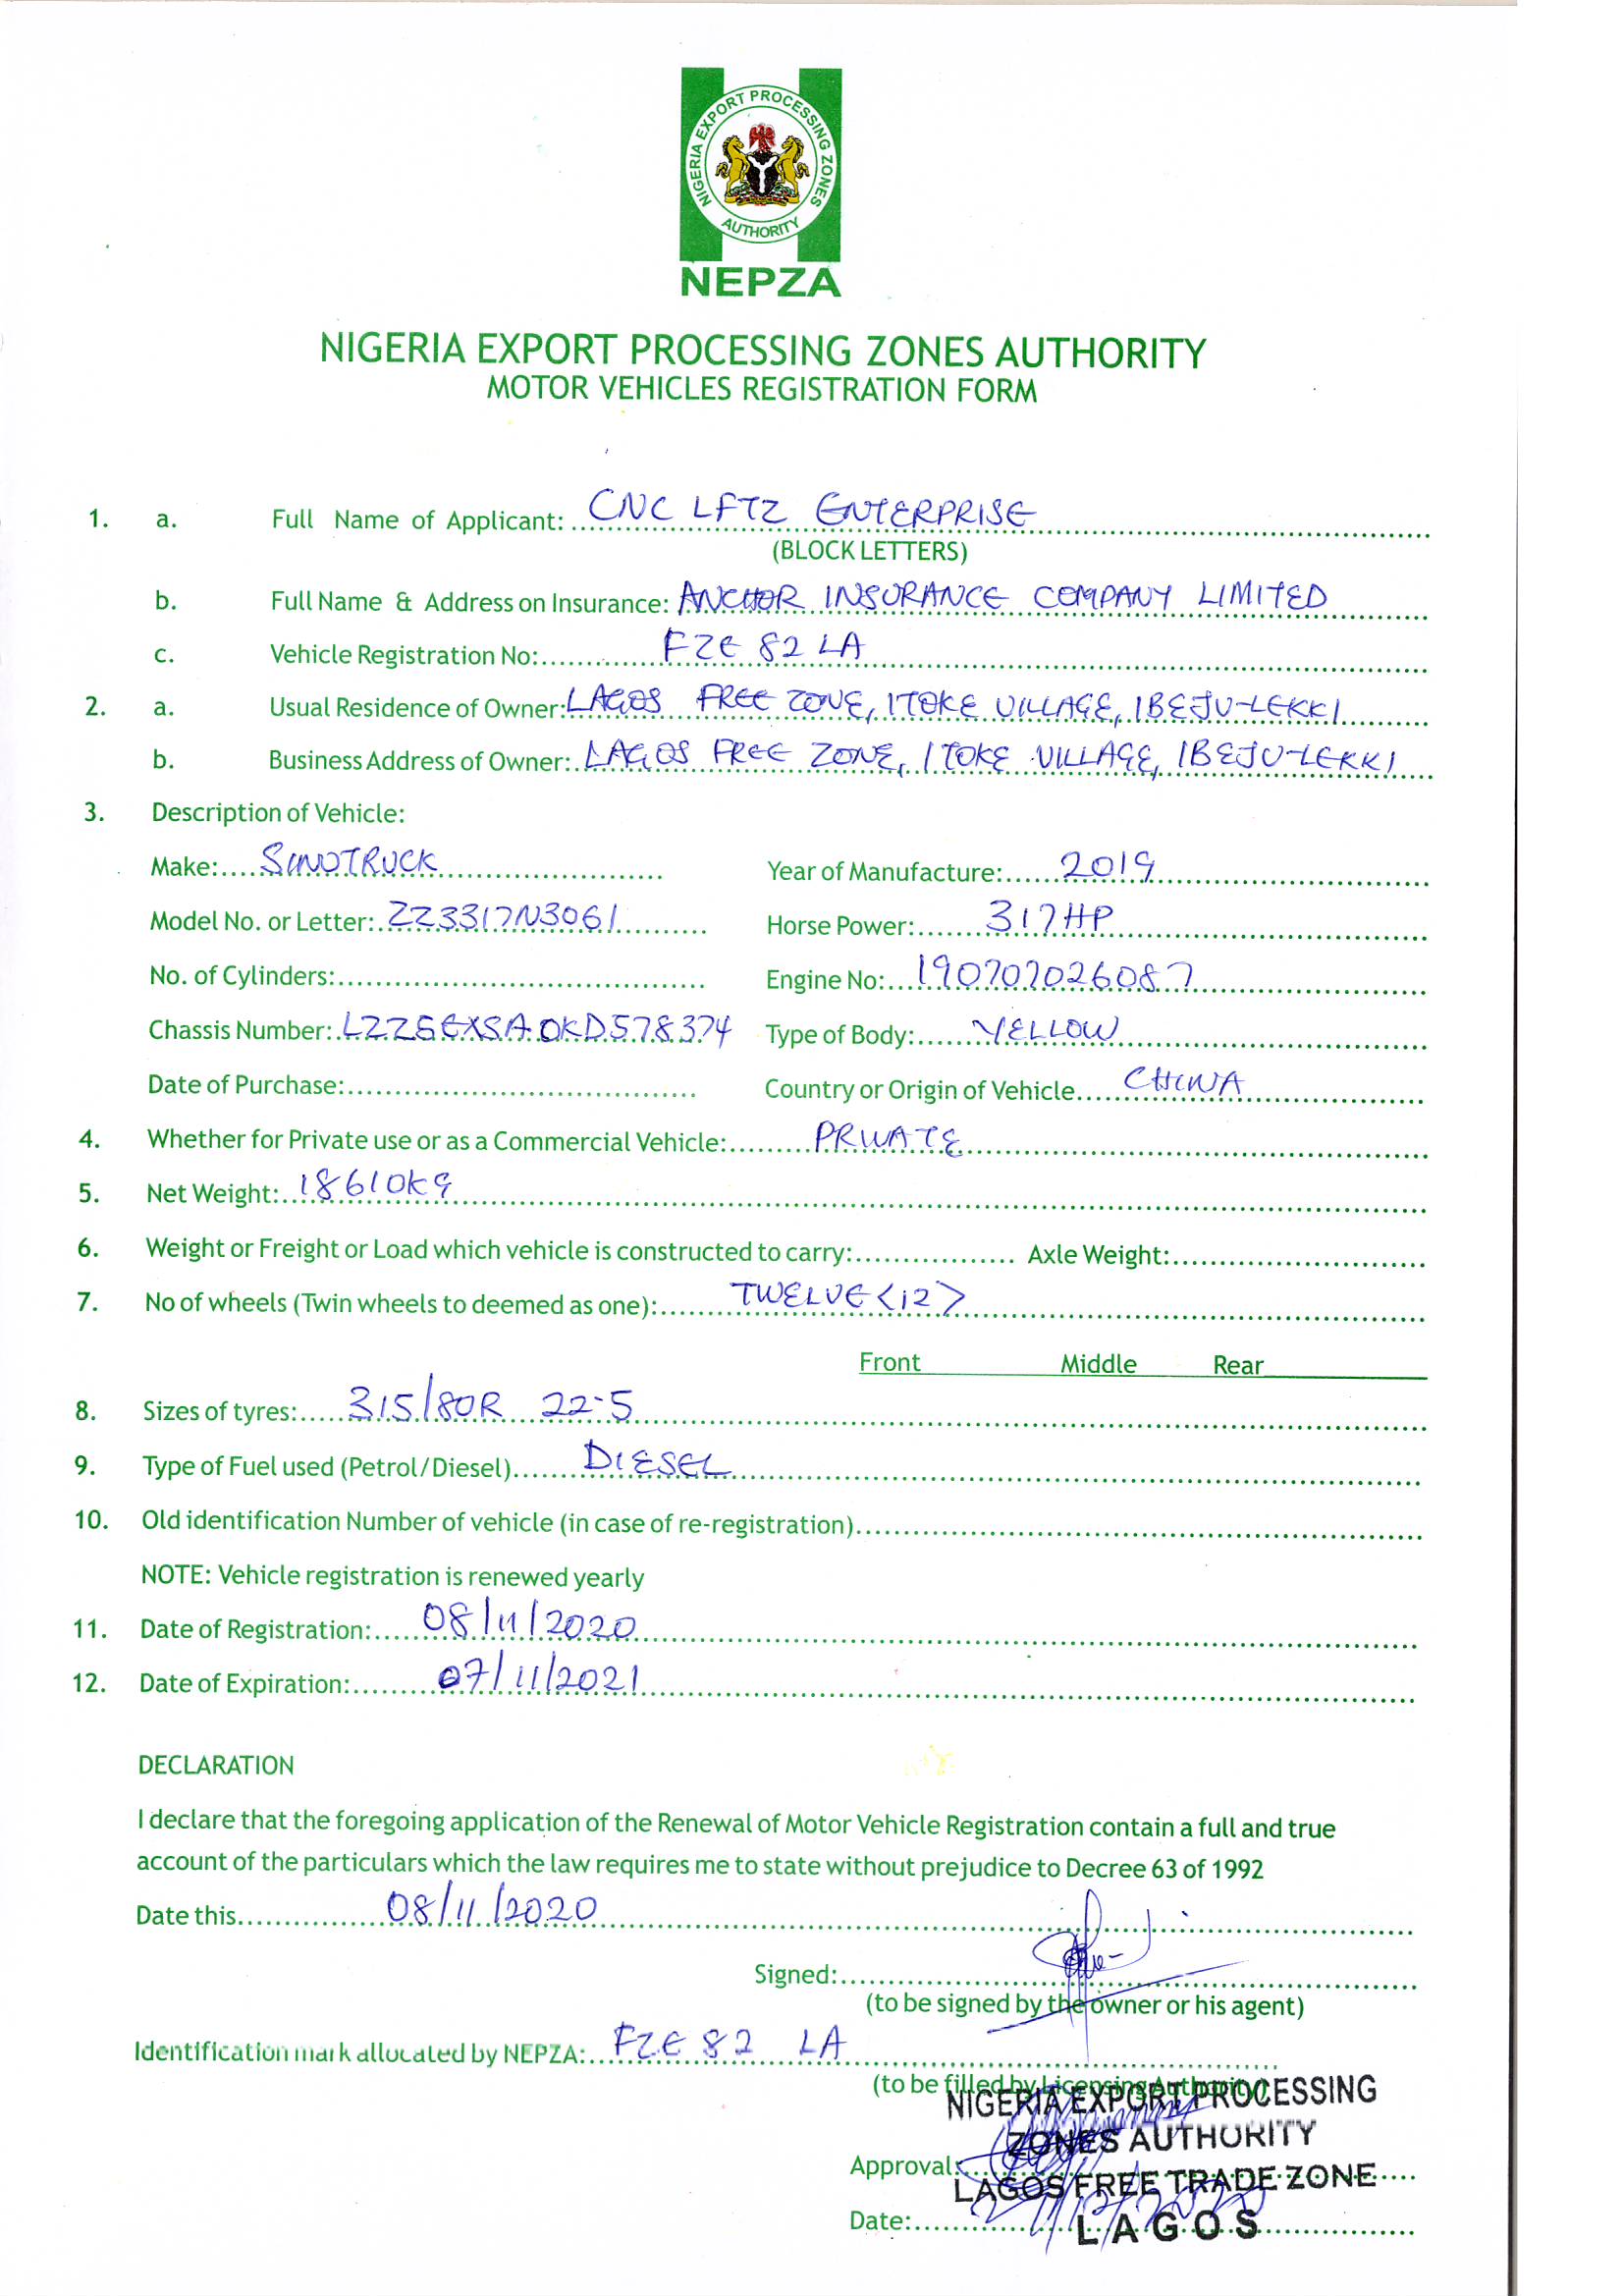 NIGERIA EXPORT PROCESSING ZONES
AUTHORITY
NEPZA
NIGERIA EXPORT PROCESSING ZONES AUTHORITY
MOTOR VEHICLES REGISTRATION FORM
1. a. Full Name of Applicant: CNC LFTZ ENTERPRISE
(BLOCK LETTERS)
b. Full Name & Address on Insurance: ANCHOR INSURANCE COMPANY LIMITED
c. Vehicle Registration No: FZE 82 LA
2. a. Usual Residence of Owner: LAGOS FREE ZONE, ITOKE VILLAGE, IBEJU-LEKKI
b. Business Address of Owner: LAGOS FREE ZONE, ITOKE VILLAGE, IBEJU-LEKKI
3. Description of Vehicle:
Make: SINOTRUCK Year of Manufacture: 2019
Model No. or Letter: ZZ3317N3061 Horse Power: 317HP
No. of Cylinders: Engine No: 190707026087
Chassis Number: LZZ5EXSA0KD578374 Type of Body: YELLOW
Date of Purchase: Country or Origin of Vehicle CHINA
4. Whether for Private use or as a Commercial Vehicle: PRIVATE
5. Net Weight: 18610kg
6. Weight or Freight or Load which vehicle is constructed to carry: Axle Weight:
7. No of wheels (Twin wheels to deemed as one): TWELVE <12>
Front Middle Rear
8. Sizes of tyres: 315/80R 22-5
9. Type of Fuel used (Petrol/Diesel) DIESEL
10. Old identification Number of vehicle (in case of re-registration)
NOTE: Vehicle registration is renewed yearly
11. Date of Registration: 08/11/2020
12. Date of Expiration: 07/11/2021
DECLARATION
I declare that the foregoing application of the Renewal of Motor Vehicle Registration contain a full and true
account of the particulars which the law requires me to state without prejudice to Decree 63 of 1992
Date this 08/11/2020
Signed:
(to be signed by the owner or his agent)
Identification mark allocated by NEPZA: FZE 82 LA
(to be filled by Licensing Authority)
NIGERIA EXPORT PROCESSING
ZONES AUTHORITY
Approval:
LAGOS FREE TRADE ZONE
Date:
LAGOS